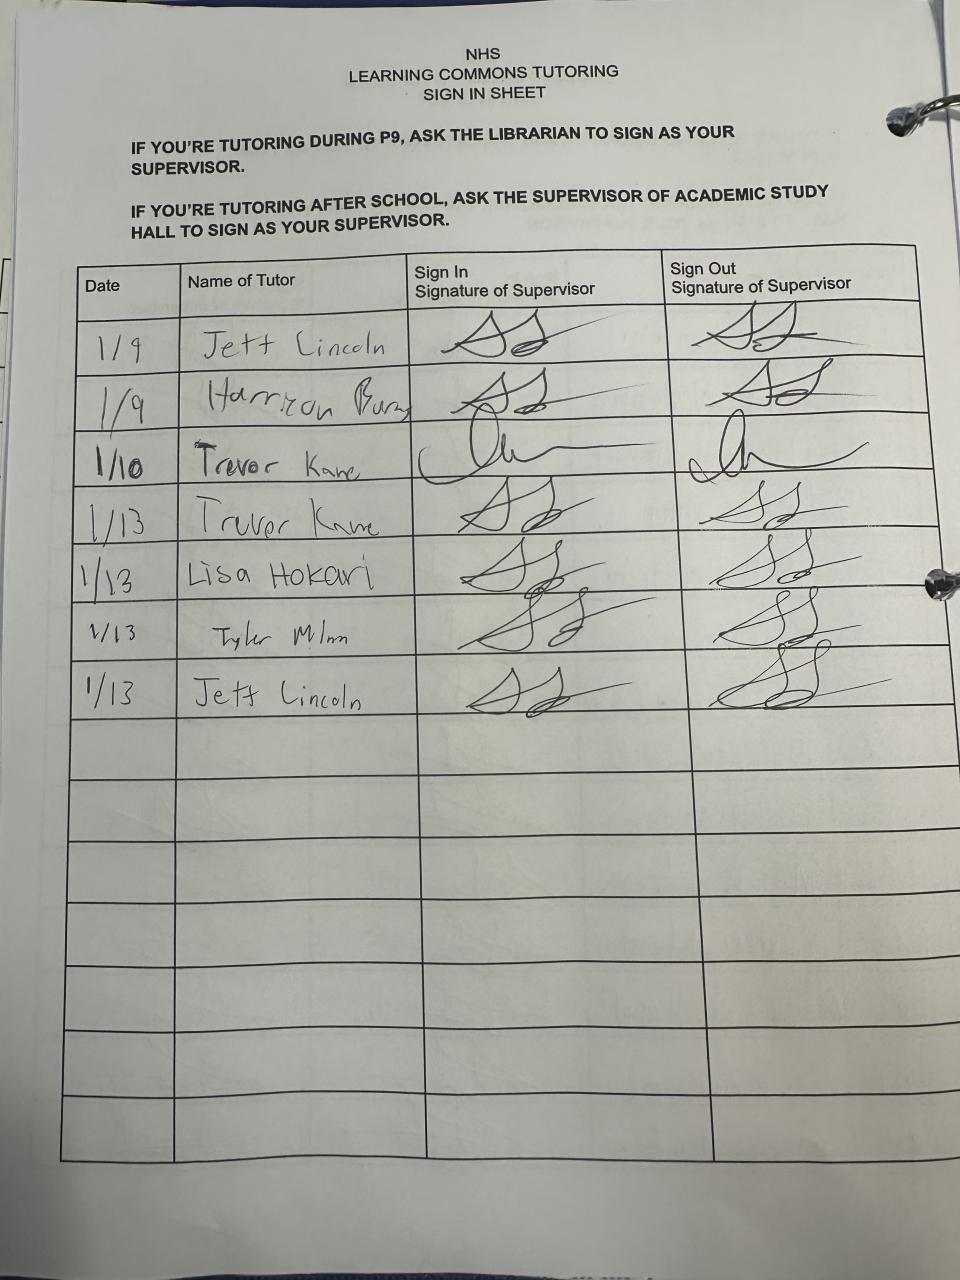 NHS
LEARNING COMMONS TUTORING
SIGN IN SHEET
IF YOU'RE TUTORING DURING P9, ASK THE LIBRARIAN TO SIGN AS YOUR
SUPERVISOR.
IF YOU'RE TUTORING AFTER SCHOOL, ASK THE SUPERVISOR OF ACADEMIC STUDY
HALL TO SIGN AS YOUR SUPERVISOR.
Date Name of Tutor Sign In Signature of Supervisor Sign Out Signature of Supervisor
1/9 Jett Lincoln
1/9 Harrison
1/10 Trevor Kane
1/13 Trevor Kane
1/13 Lisa Hokari
1/13 Tyler
1/13 Jett Lincoln